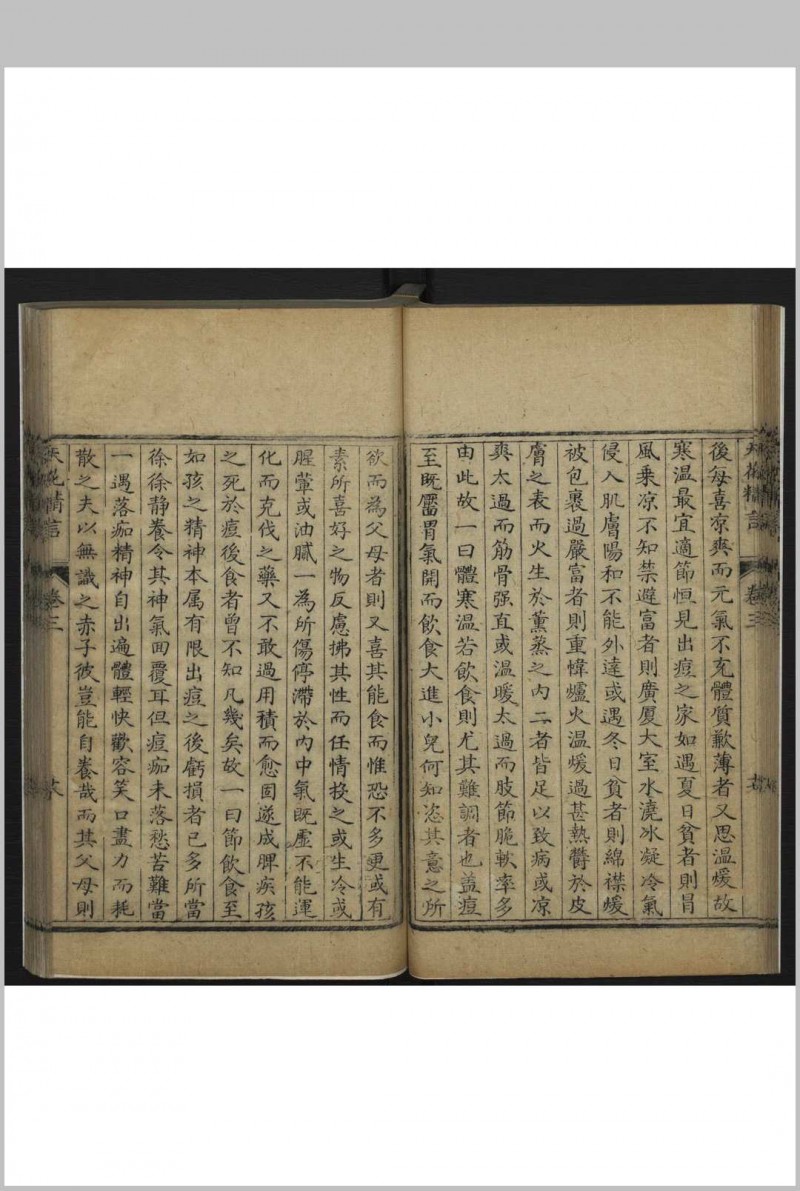 天花精言 卷三
後每喜凉爽而元氣不充體質歉薄者又思溫煖故
寒温最宜適節恒見出痘之家如遇夏日貧者則冒
風乘凉不知禁避富者則廣厦大室水澆冰凝冷氣
侵入肌膚陽和不能外達或遇冬日貧者則綿襟煖
被包裹過嚴富者則重幃爐火温煖過甚熱欝於皮
膚之表而火生於薰蒸之内二者皆足以致病或凉
爽太過而筋骨强直或温暖太過而肢節脆軟率多
由此故一曰體寒温若飲食則尤其難調者也盖痘
至既靨胃氣開而飲食大進小兒何知恣其意之所
欲而為父母者則又喜其能食而惟恐不多更或有
素所喜好之物反慮拂其性而任情投之或生冷或
腥葷或油膩一為所傷停滯於内中氣既虛不能運
化而克伐之藥又不敢過用積而愈固遂成脾疾孩
之死於痘後食者曾不知凡幾矣故一曰節飲食至
如孩之精神本属有限出痘之後虧損者已多所當
徐徐静養令其神氣囬覆耳但痘痂未落愁苦難當
一遇落痂精神自出遍體輕快歡容笑口盡力而耗
散之夫以無識之赤子彼豈能自養哉而其父母則
天花精言 卷三